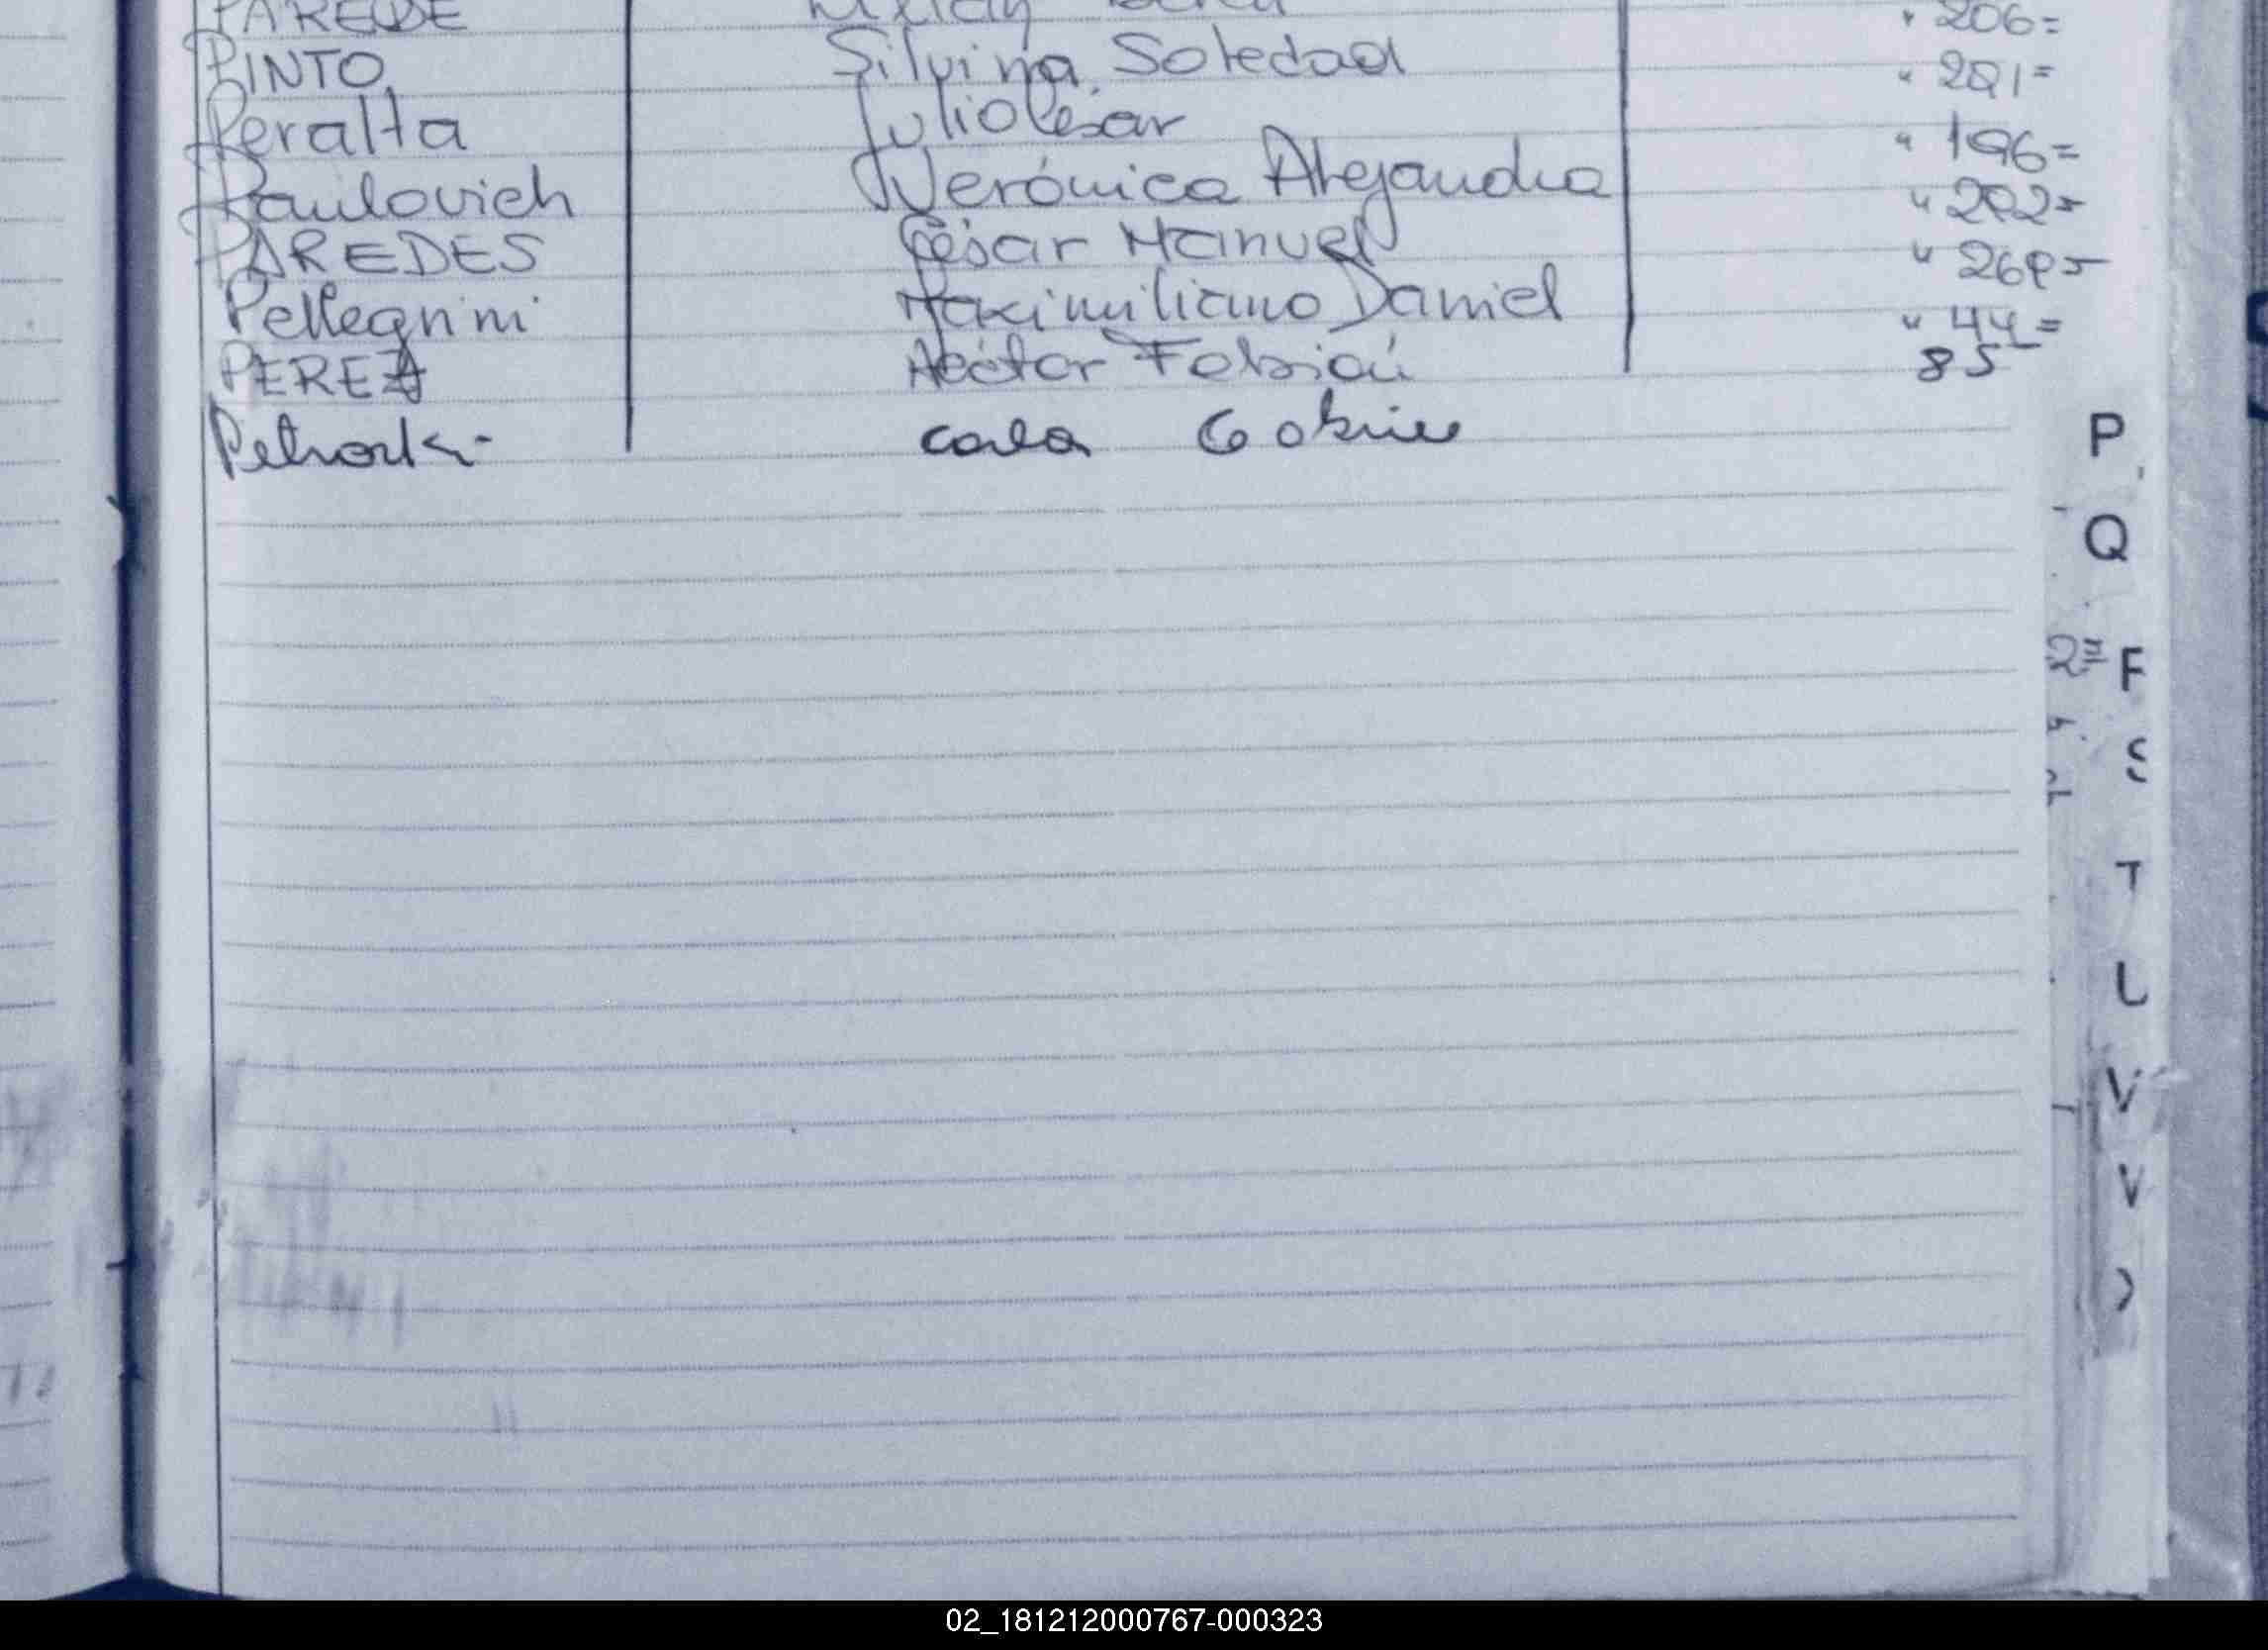 PAREDE 206=
PINTO Silvina Soledad " 291=
Peralta Julio César " 196=
Paulovich Verónica Alejandra " 292=
PAREDES César Manuel "
Pellegrini Maximiliano Daniel " 44=
PEREZ Héctor Fabián 85
Carla
P
Q
F
S
T
L
V
V
02_181212000767-000323